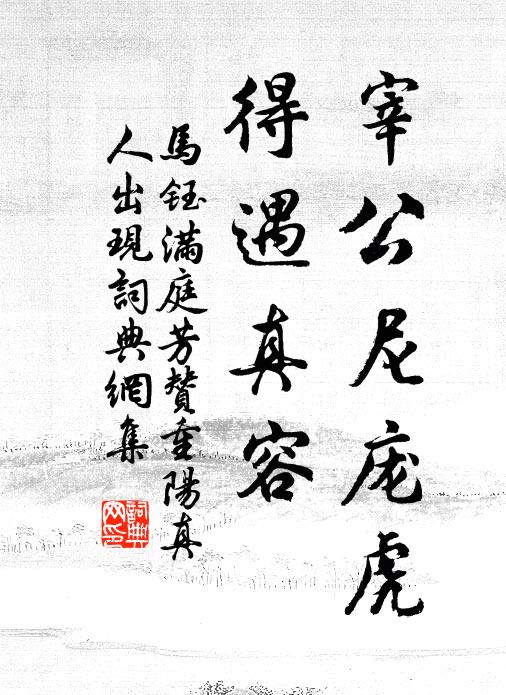 宰公尼庞虎
得遇真容
馬鈺滿庭芳贊重陽真
人出現詞典網集
詞典
网印